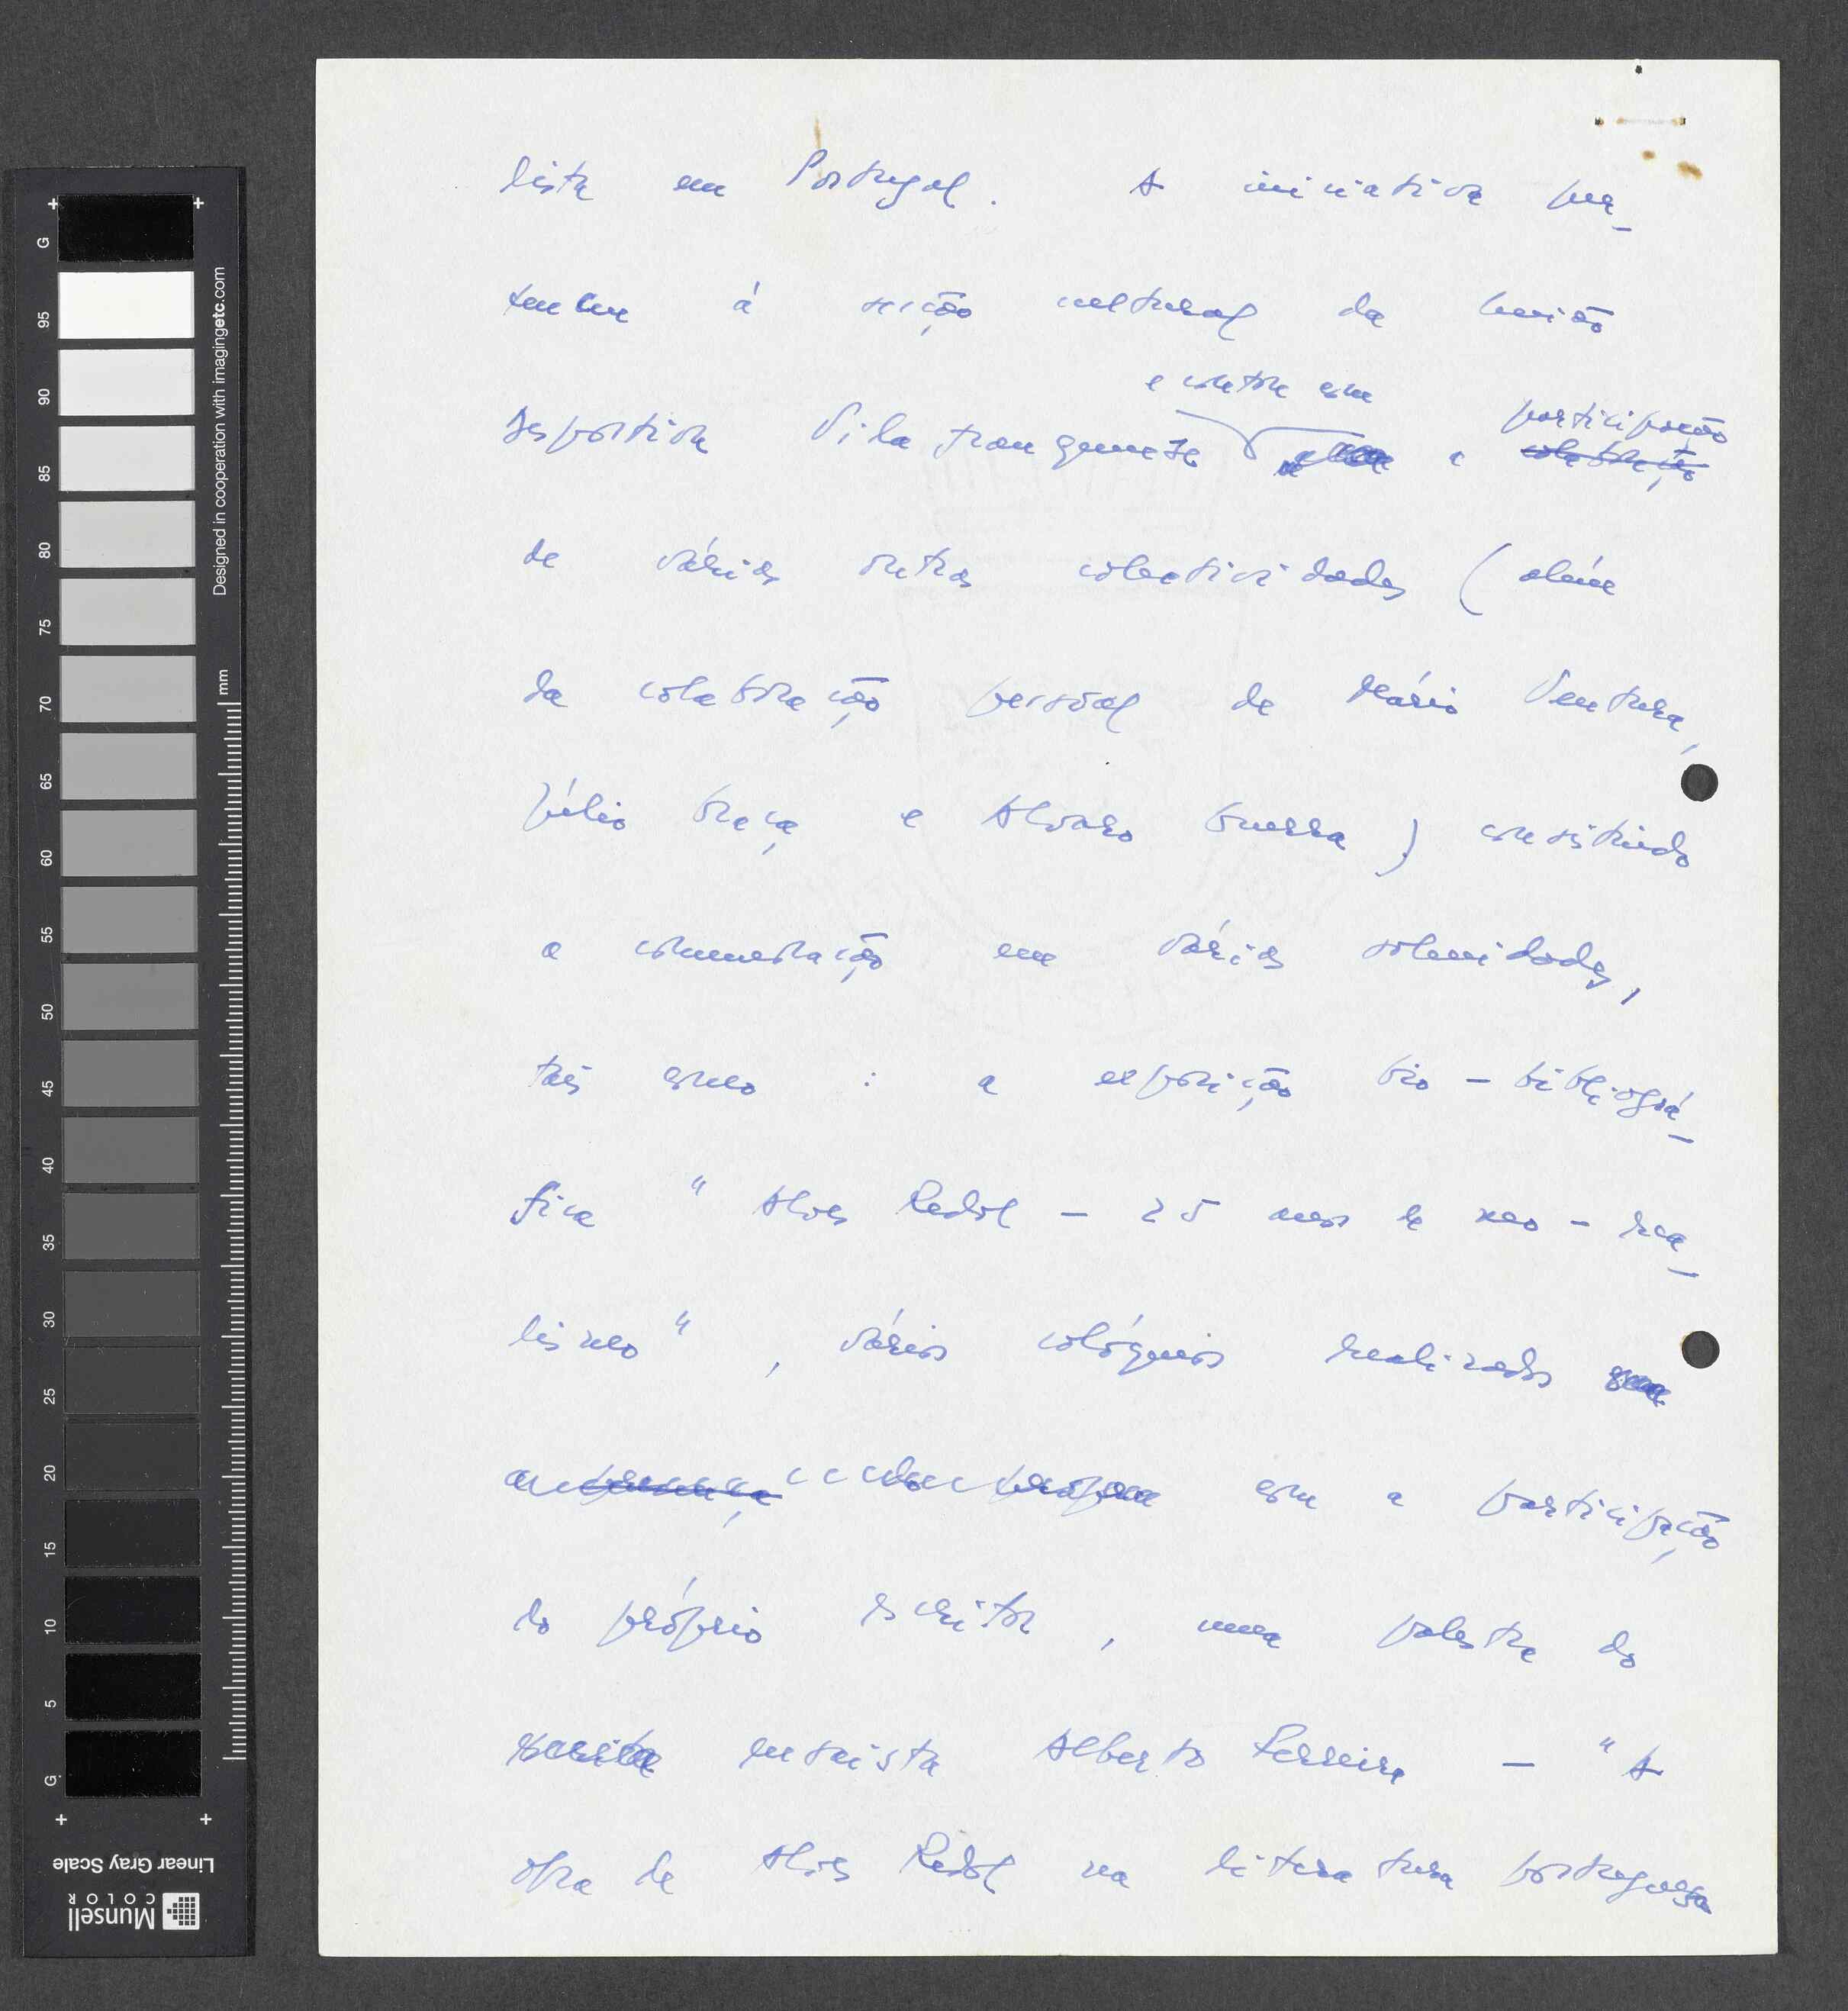 lista em Portugal. A iniciativa per-
tenceu à secção cultural da União
e conta com
participação
Desportiva Vilafranquense e a colaboração
de várias outras colectividades (além
da colaboração pessoal de Mário Ventura,
Júlio Graça e Alvaro Guerra) consistindo
a comemoração em várias solenidades,
tais como : a exposição bio-bibliográ-
fica "Alves Redol - 25 anos de neo-rea-
lismo", vários colóquios realizados
com a participação
do próprio escritor, uma palestra do
ensaista Alberto Ferreira - "A
obra de Alves Redol na literatura portuguesa
G 95 90 85 80 75 70 65 60 55 50 45 40 35 30 25 20 15 10 5 G
mm
Designed in cooperation with imagingetc.com
Linear Gray Scale
Munsell
COLOR